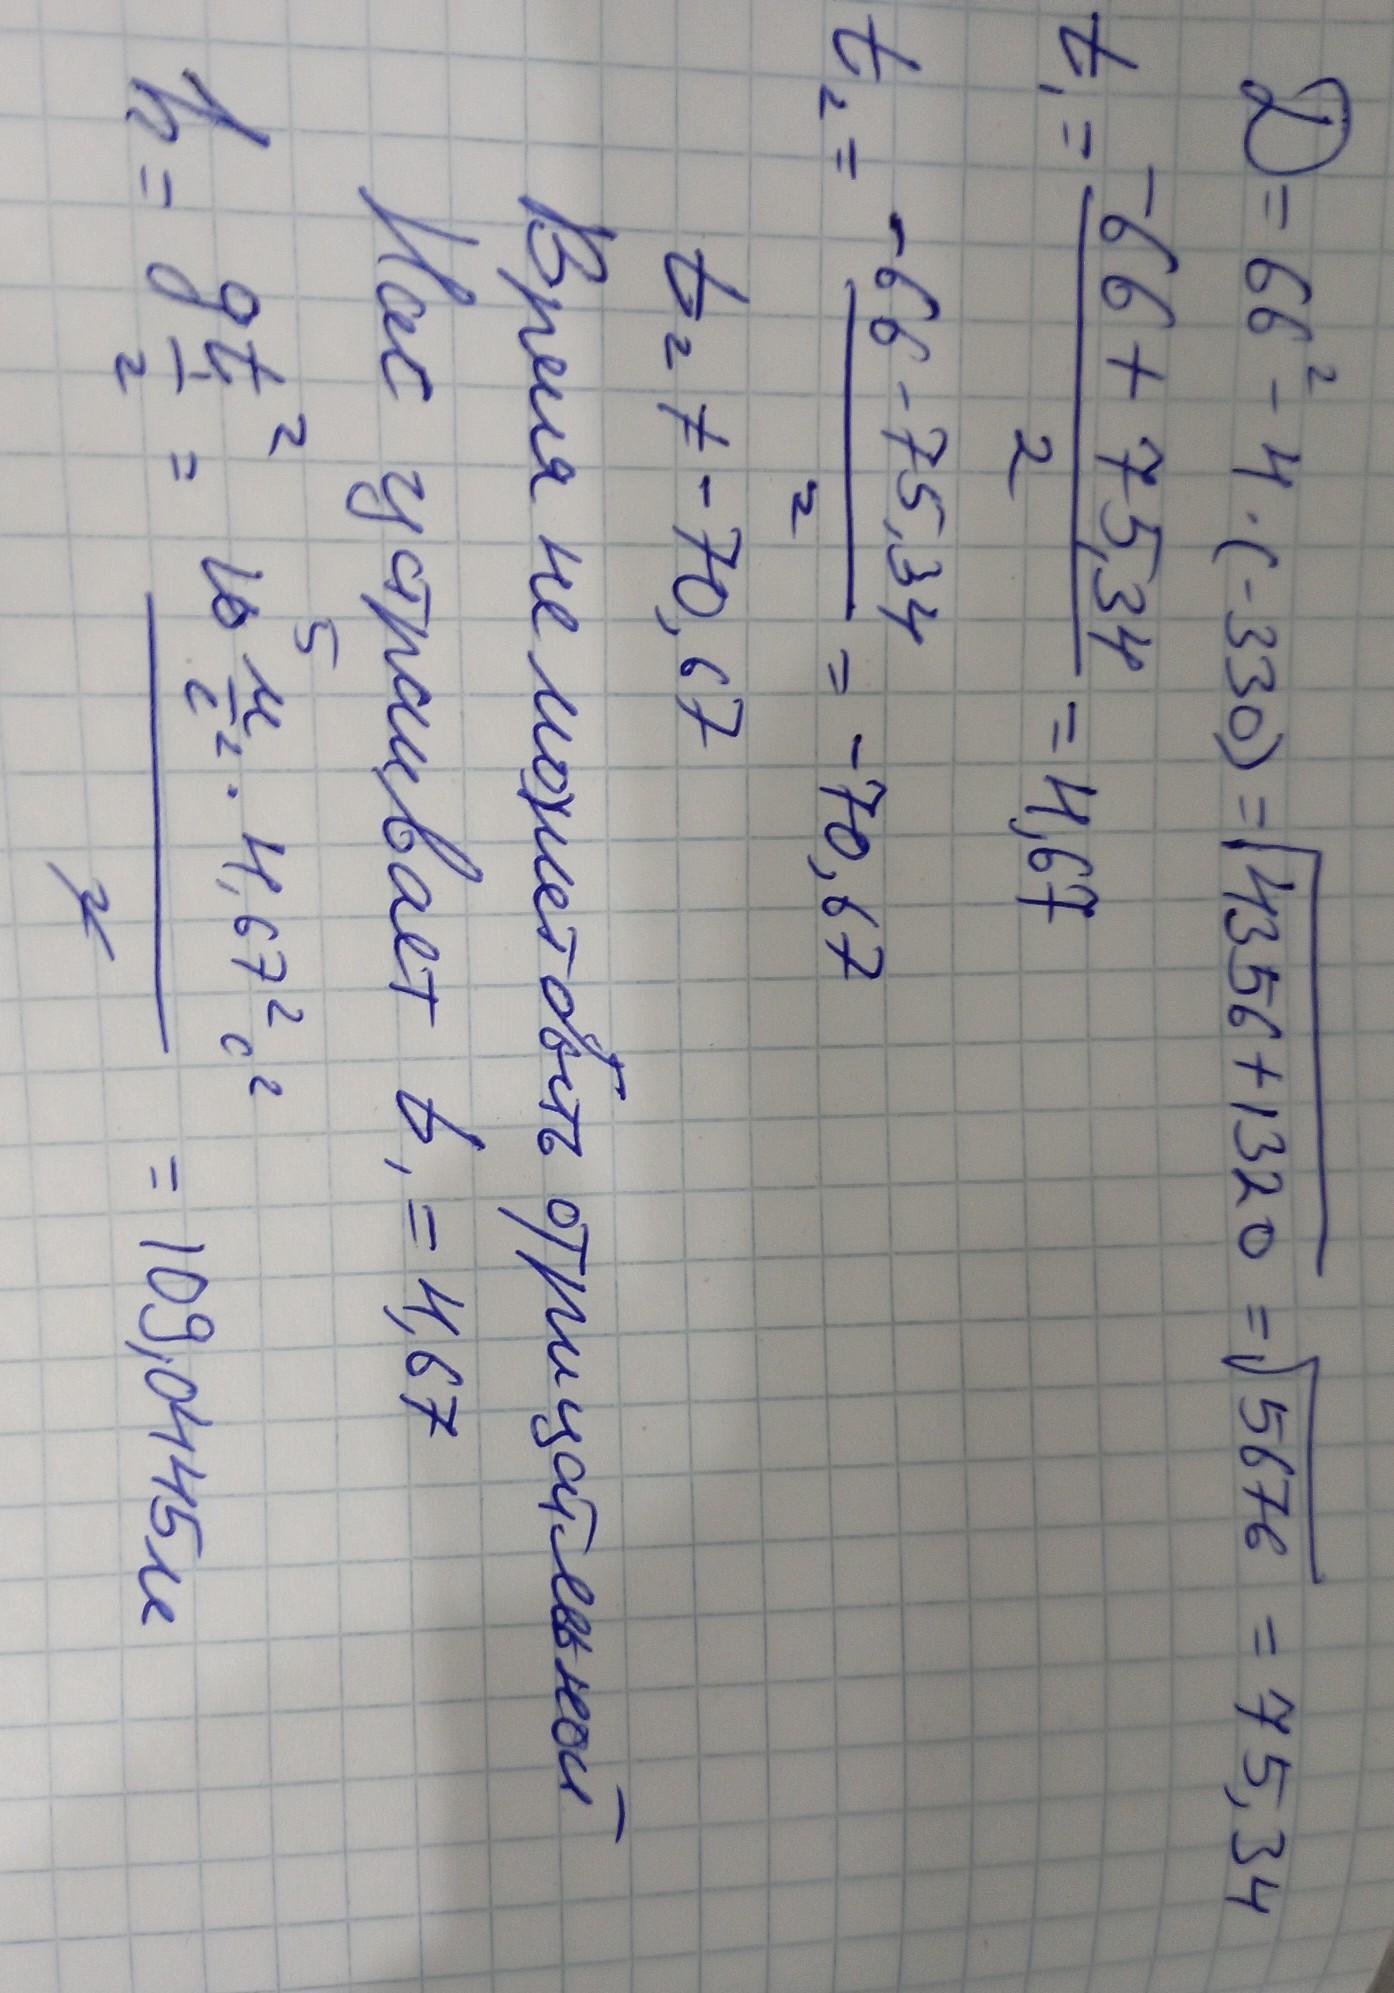 D = 66² - 4 · (-330) = √4356+1320 = √5676 = 75,34
t₁ = -66 + 75,34 / 2 = 4,67
t₂ = -66 - 75,34 / 2 = -70,67
t₂ ≠ -70,67
Время не может быть отрицательной
Нас устраивает t₁ = 4,67
h = gt² / 2 = 10 5 м/с² · 4,67² с² / 2 = 109,0445м